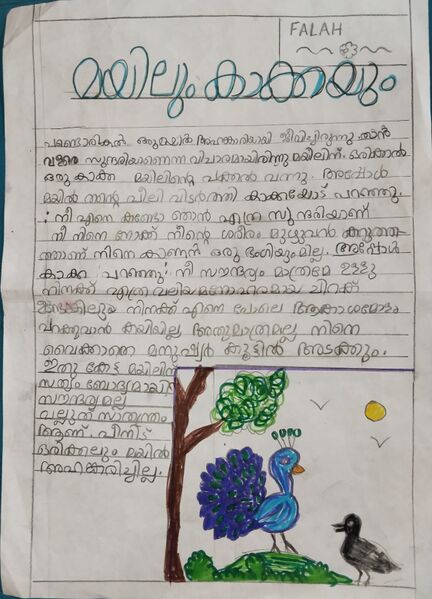 FALAH
മയിലും കാക്കയും
പണ്ടൊരിക്കൽ ഒരുമയിൽ അഹങ്കാരിയായി ജീവിച്ചിരുന്നു താൻ
വളരെ സുന്ദരിയാണെന്ന വിചാരമായിരിന്നു മയിലിന്. ഒരിക്കൽ
ഒരു കാക്ക മയിലിന്റെ പക്കൽ വന്നു. അപ്പോൾ
മയിൽ തന്റെ പീലി വിടർത്തി കാക്കയോട് പറഞ്ഞു.
നീ എന്നെ കണ്ടോ ഞാൻ എന്ത്ര സുന്ദരിയാണ്
നീ നിന്നെ നോക്ക് നിന്റെ ശരീരം മുഴുവൻ കറുത്ത
താണ് നിന്നെ കാണാൻ ഒരു ഭംഗിയുംമില്ല. അപ്പോൾ
കാക്ക പറഞ്ഞു നീ സൗന്ദര്യം മാത്രമേ ഉള്ളു
നിനക്ക് എത്ര വലിയമനോഹരമായ ചിറക്
ഉണ്ടെങ്കിലും നിനക്ക് എന്നെ പോലെ ആകാശമോട്ടം
പറക്കുവാൻ കയിയില്ല അതുമാത്രമല്ല നിന്നെ
വൈക്കാതെ മനുഷ്യർ കൂട്ടിൽ അടക്കും.
ഇതു കേട്ട മയിലിന്
സത്യം ബോദ്യമായി
സൗന്ദര്യമല്ല
വല്ലുത് സ്വതന്ത്രം
ആണ്. പിന്നീട്
ഒരിക്കലും മയിൽ
അഹങ്കരിച്ചില്ല.